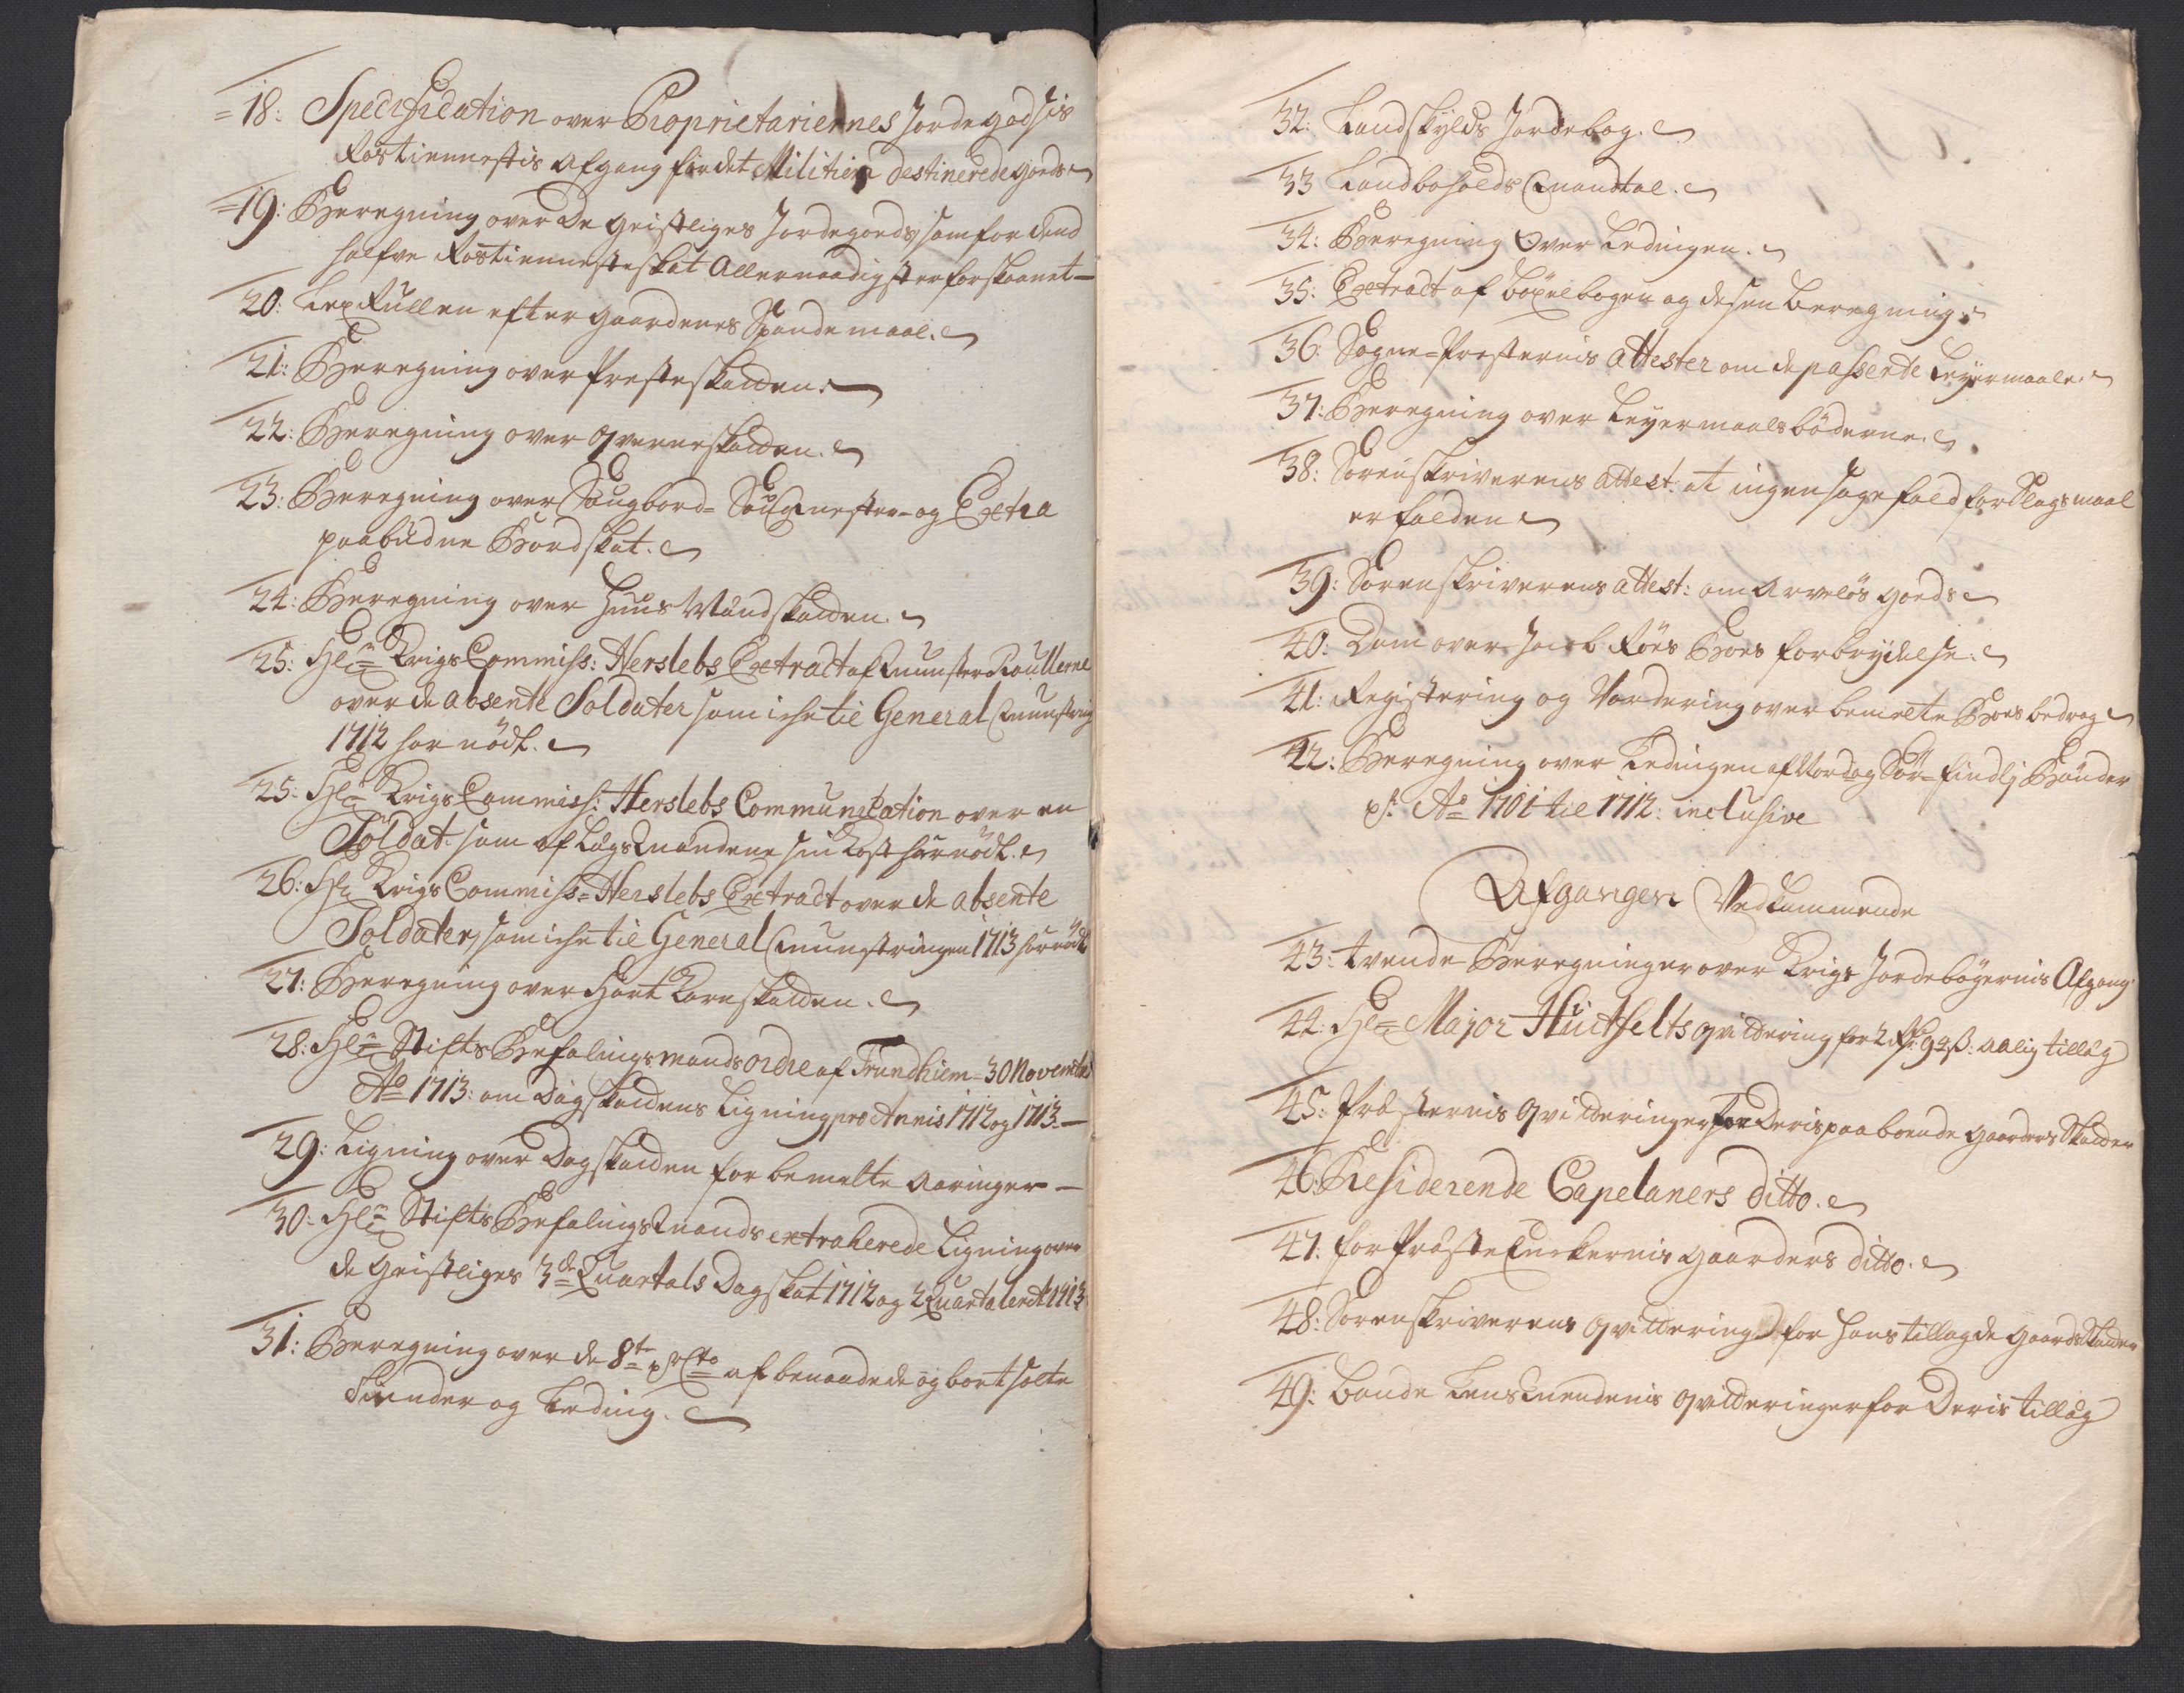 18: Specification over Proprietariernes Jordegodsis
Rostiennestis Afgang for det Militien destinerede gords
19: Beregning over De geistliges Jordegoeds, som for dend
halfve Rostienniste skat Allernaadigst er forskaanet
20: Leg Rullen efter gaardenes Spande maal.
21: Beregning over Proste skatten.
22: Beregning over qverne skatten.
23: Beregning over Saugbord- Saugmester- og Extra
paabudne Bordskat.
24: Beregning over Huus Mandskatten.
25: Hl: Krigs Commiss: Herslebs Extract af Munster Roullerne
over de absente Soldater som iche til General Munstring
1712 har mödt.
25: Hl: Krigs Commiss: Herslebs Communication over en
Soldat som af Lægs Mændene sin Kost har nödt.
26: Hl: Krigs Commiss: Herslebs Extract over de absente
Soldater, som iche til General Munstringen 1713 har mödt
27: Beregning over Hart Korn skatten.
28: Hl: Stifts Befalings mands ordre af Trundhiem 30 November
Ao 1713: om Dagskattens Ligning pro Annis 1712 og 1713.
29: Ligning over Dagskatten for bemelte Aaringer
30: Hl: Stifts Befalings Mands extraherede Ligning over
de Geistliges 3de Quartals Dagskat 1712 og 2 Quartaler dt 1713
31: Beregning over de 8te pr Cto af benaadede og bort solte
Tiender og Leding.
32: Landskylds Jordebog.
33 Landboholds Mandtal.
34: Beregning Over Ledingen.
35: Extract af böxelbogen og dessen Beregning
36: Sogne-Presternis Attester om de passerte Leyermaale.
37: Beregning over Leyermaals böderne.
38: Sorenskriverens Attest: at ingen sagefald for Slagsmaal
er falden
39: Sorenskriverens Attest: om Arvelös goeds
40: Dom over Jacob Röes Boes forbrydelse.
41: Registering og Vordering over bemelte Boes bedrag
42: Beregning over Ledingen af Nord og Sör-findlj Bönder
pr. Ao 1701 til 1712: inclusive
Afgangen Vedkommende
43: tvende Beregninger over Krigs Jordebögernis Afgang.
44: Hl: Major Hüetfelts qvittering for 2 Rd: 92 ß: aalig tillæg
45: Præsternis Qvitteringer for Deris paaboende gaarders Skatter
46: Residerende Capelaners ditto.
47: for Præste Enkernis gaarders ditto.
48: Sorenskriverens Qvittering for hans tillagde gaards Skatter
49: Bonde LensMendenis qvitteringer for Deris tillæg